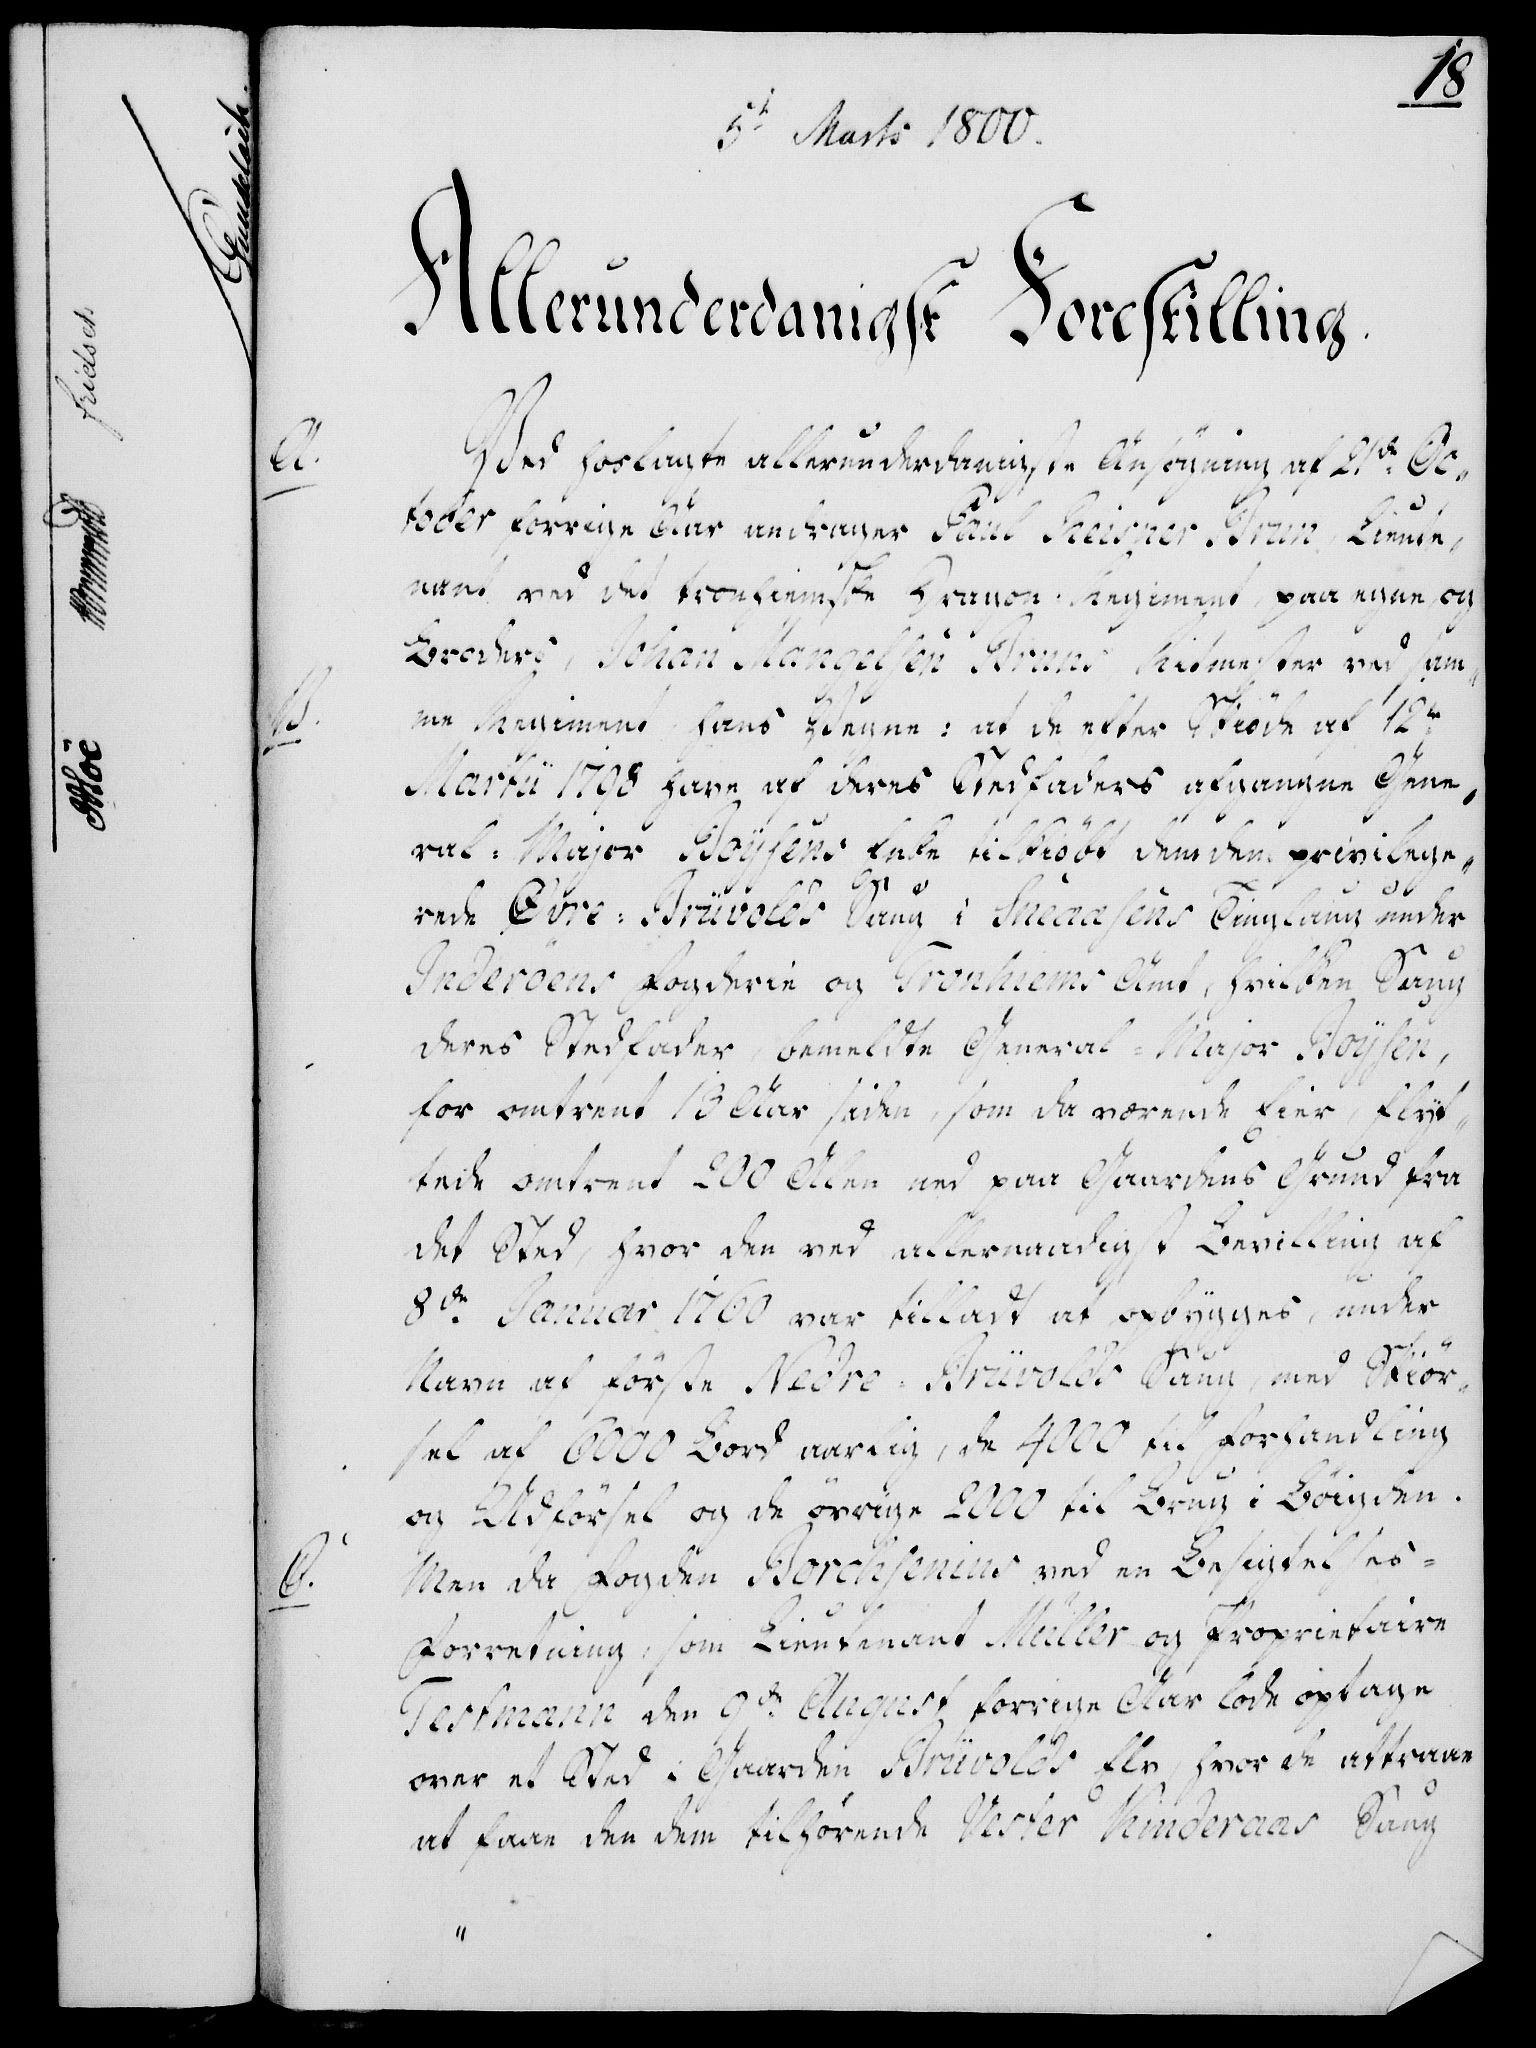 18
5t Marts 1800.
Allerunderdanigst Forestilling.
A.
Ved hoslagte allerunderdanigste Ansøgning af 21de Oc-
tober forrige Aar andrager Paul Reisner Brun, Lieute-
nant ved det tronhiemske Dragon-Regiment, paa egne og
Broders, Johan Mangelsen Bruns, Ritmester ved sam-
B.
me Regiment, hans Vegne: at de efter Skiøde af 12te
Martii 1798 have af deres Stedfaders afgangne Gene-
ral-Major Boysens Enke tilkiøbt dem den privilege-
rede Øvre-Brüvolds Saug i Sneaasens Tinglaug under
Inderøens Fogderie og Tronhiems Amt, hvilken Saug
deres Stedfader, bemeldte General-Major Boysen,
for omtrent 13 Aar siden, som da værende Eier, flyt-
tede omtrent 200 Alen ned paa Gaardens Grund fra
det Sted, hvor den ved allernaadigst Bevilling af
8de Januar 1760 var tilladt at opbygges, under
Navn af første Nedre-Brüvolds Saug, med Skiør-
sel af 6000 Bord aarlig, de 4000 til Forhandling
og Udførsel og de øvrige 2000 til Brug i Bøigden.
C.
Men da Fogden Borchsenius ved en Besigtelses-
Forretning, som Lieutenant Müller og Proprietaire
Testmann den 9de August forrige Aar lode optage
over et Sted i Gaarden Brüvolds Elv, hvor de attraae
at faae den dem tilhørende Vester Kinderaas Saug